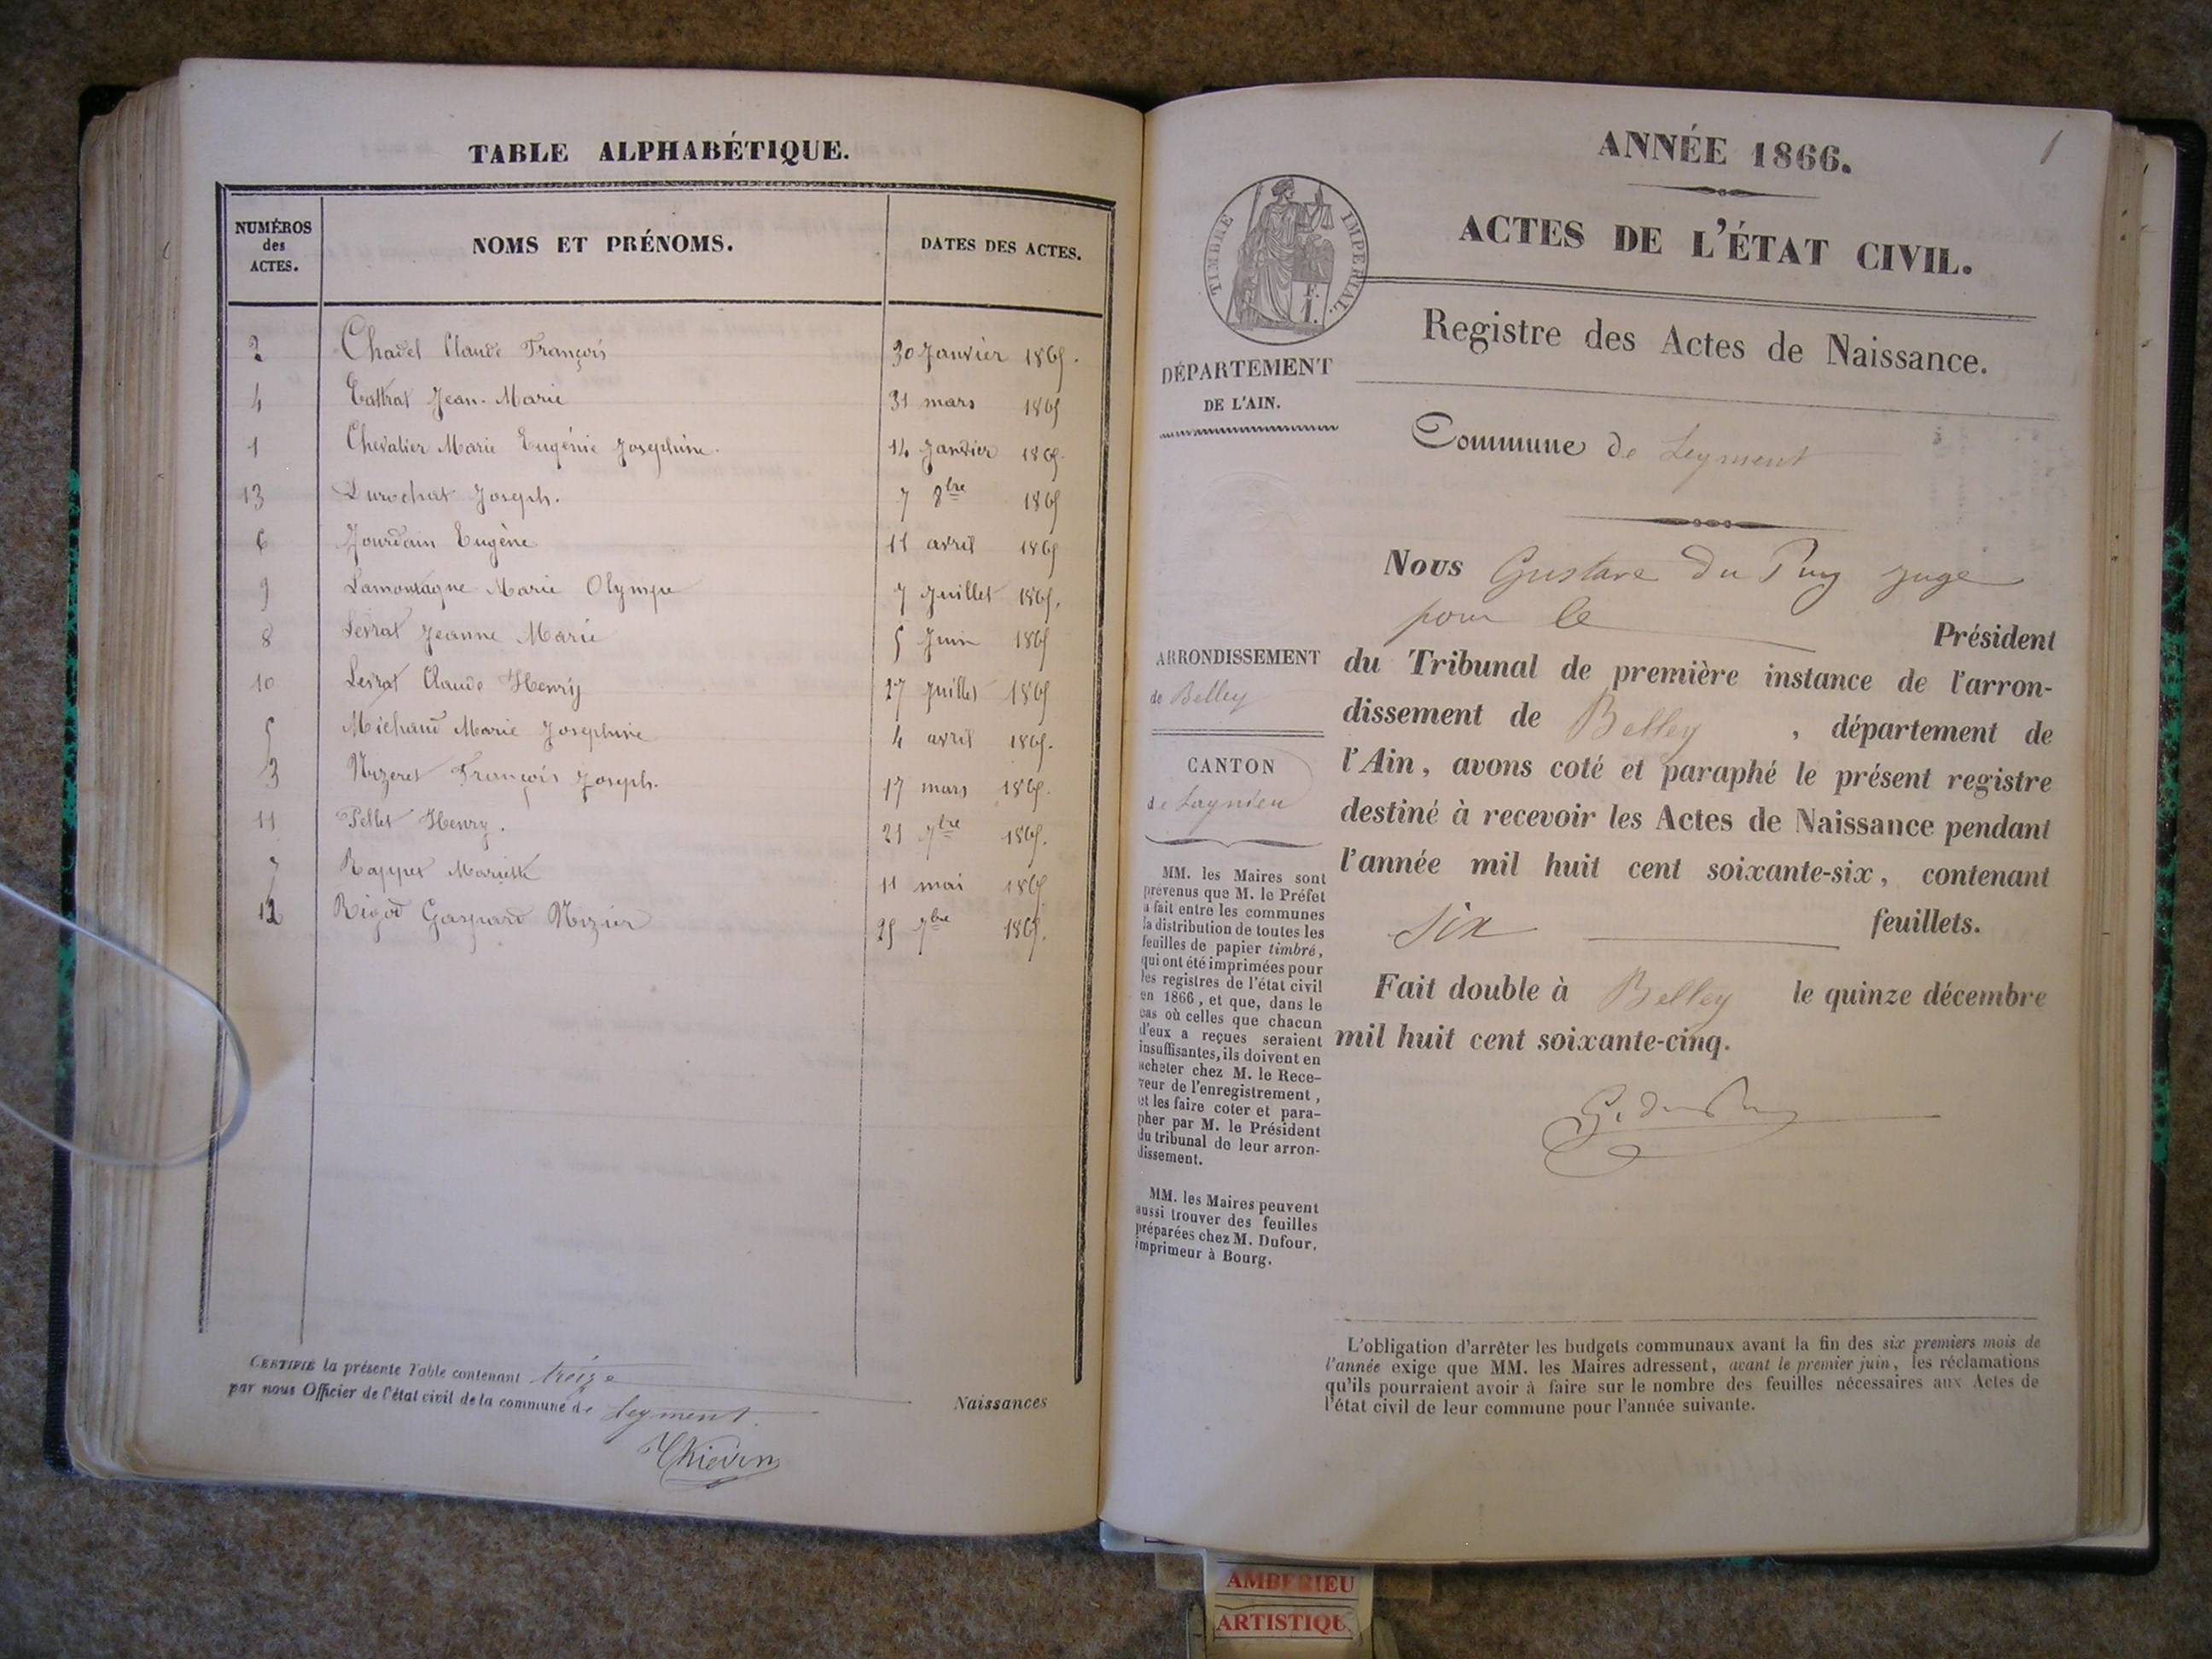 TABLE ALPHABÉTIQUE.
NUMÉROS des ACTES. NOMS ET PRÉNOMS. DATES DES ACTES.
2 Chadel Claude François 30 Janvier 1865.
4 Jean-Marie 31 mars 1865
1 Chevalier Marie Eugénie Joséphine. 14 Janvier 1865.
13 Durochat Joseph. 7 8bre 1865
6 Jourdain Eugène 11 avril 1865
9 Lamontagne Marie Olympe 7 Juillet 1865.
8 Levrat Jeanne Marie 5 Juin 1865
10 Levrat Claude Henry 27 Juillet 1865
5 Michaud Marie Joséphine 4 avril 1865.
3 Nizeret François Joseph. 17 mars 1865.
11 Pellet Henry. 21 7bre 1865.
7 Rappet Mariette 11 mai 1865
12 Rigod Gaspard Nizier 25 7bre 1865.
CERTIFIÉ la présente Table contenant treize
Naissances
par nous Officier de l'état civil de la commune de Leyment.
Thiévin
1
ANNÉE 1866.
ACTES DE L'ÉTAT CIVIL.
TIMBRE IMPERIAL.
F.
1.
Registre des Actes de Naissance.
DÉPARTEMENT
DE L'AIN.
Commune de Leyment
Nous Gustave Du Puy juge
pour le Président
du Tribunal de première instance de l'arron-
dissement de Belley, département de
l'Ain, avons coté et paraphé le présent registre
destiné à recevoir les Actes de Naissance pendant
l'année mil huit cent soixante-six, contenant
six feuillets.
Fait double à Belley le quinze décembre
mil huit cent soixante-cinq.
G. du Puy
ARRONDISSEMENT
de Belley
CANTON
de Lagnieu
MM. les Maires sont
prévenus que M. le Préfet
a fait entre les communes
la distribution de toutes les
feuilles de papier timbré,
qui ont été imprimées pour
les registres de l'état civil
en 1866, et que, dans le
cas où celles que chacun
d'eux a reçues seraient
insuffisantes, ils doivent en
acheter chez M. le Rece-
veur de l'enregistrement,
et les faire coter et para-
pher par M. le Président
du tribunal de leur arron-
dissement.
MM. les Maires peuvent
aussi trouver des feuilles
préparées chez M. Dufour,
imprimeur à Bourg.
L'obligation d'arrêter les budgets communaux avant la fin des six premiers mois de
l'année exige que MM. les Maires adressent, avant le premier juin, les réclamations
qu'ils pourraient avoir à faire sur le nombre des feuilles nécessaires aux Actes de
l'état civil de leur commune pour l'année suivante.
AMBERIEU
ARTISTIQU